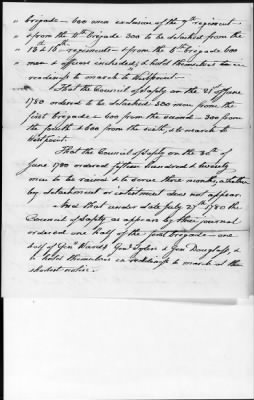 " brigade - 600 men exclusive of the 7th regiment
" & from the 4th brigade 300 to be detached from the
" 13th & 18th regiments - & from the 6th brigade 600
" men & officers included, & hold themselves in
" readiness to march to Westpoint.
That the Council of Safety on the 21st of June
1780 ordered to be detached 500 men from the
first brigade - 600 from the second - 300 from
the fourth & 600 from the sixth, & to march to
Westpoint.
That the Council of Safety on the 30th of
June 1780 ordered fifteen hundred & twenty
men to be raised & to serve three months, whether
by detachment or inlistment does not appear.
And that under date July 27th 1780 the
Council of Safety as appears by their journal
ordered one half of the first brigade - one
half of Genl Wards, Genl Tylers & Genl Douglass, &
to hold themselves in readiness to march at the
shortest notice.